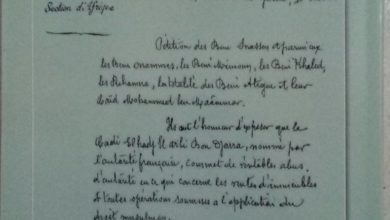 Section d'Afrique
Pétition des Beni Snassen et parmi eux
les Beni Ourimèche, les Beni Mimoun, les Beni Khaled,
les totalité des Beni Atigue et leur
Caïd Mohammed ben
Ils ont l'honneur d'exposer que le
Cadi El hadj El arbi Bou nommé par
l'autorité française, commet de véritables abus
d'autorité en ce qui concerne les ventes d'immeubles
et toutes opérations soumises à l'application du
droit musulman.